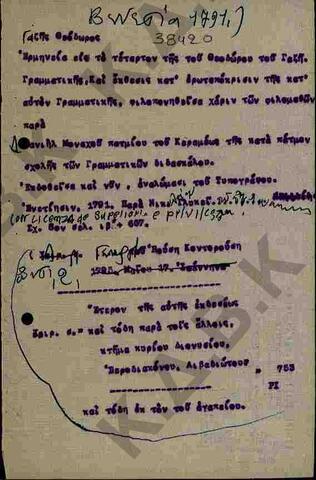 Βενετία 1791.)
Γαζῆς Θεόδωρος
38420
Ἑρμηνεία εἰς τὸ τέταρτον τῆς τοῦ Θεοδώρου τοῦ Γαζῆ
Γραμματικῆς, Καὶ ἔκθεσις κατ' ἐρωταπόκρισιν τῆς κατ'
αὐτὸν Γραμματικῆς, φιλοπονηθεῖσα χάριν τῶν φιλομαθῶν
παρὰ
Δανιὴλ Μοναχοῦ πατμίου τοῦ Κεραμέως τῆς κατὰ πάτμον
σχολῆς τῶν Γραμματικῶν διδασκάλου.
Ἐκδοθεῖσα καὶ νῦν, ἀναλώμασι τοῦ Τυπογράφου.
Ἐνετίησιν, 1791. Παρὰ Νικολάῳ
Con licenza de Superiori, e privilegio.
Σχ. 8ον σελ. ιβ + 607.
Βρύση Κοντορούση
1795 Μαΐου 17. Ἰωάννινα
Ἕτερον τῆς αὐτῆς ἐκδόσεως
ἀριθ. 6." καὶ τόδη παρὰ τοῖς ἄλλοις,
κτῆμα κυρίου Διονυσίου,
Ἱεροδιακόνου. Λιβαδιώτου" 753
ΡΙ
καὶ τόδη ἐκ τὸν τοῦ
Κ.Α.Β.Κ